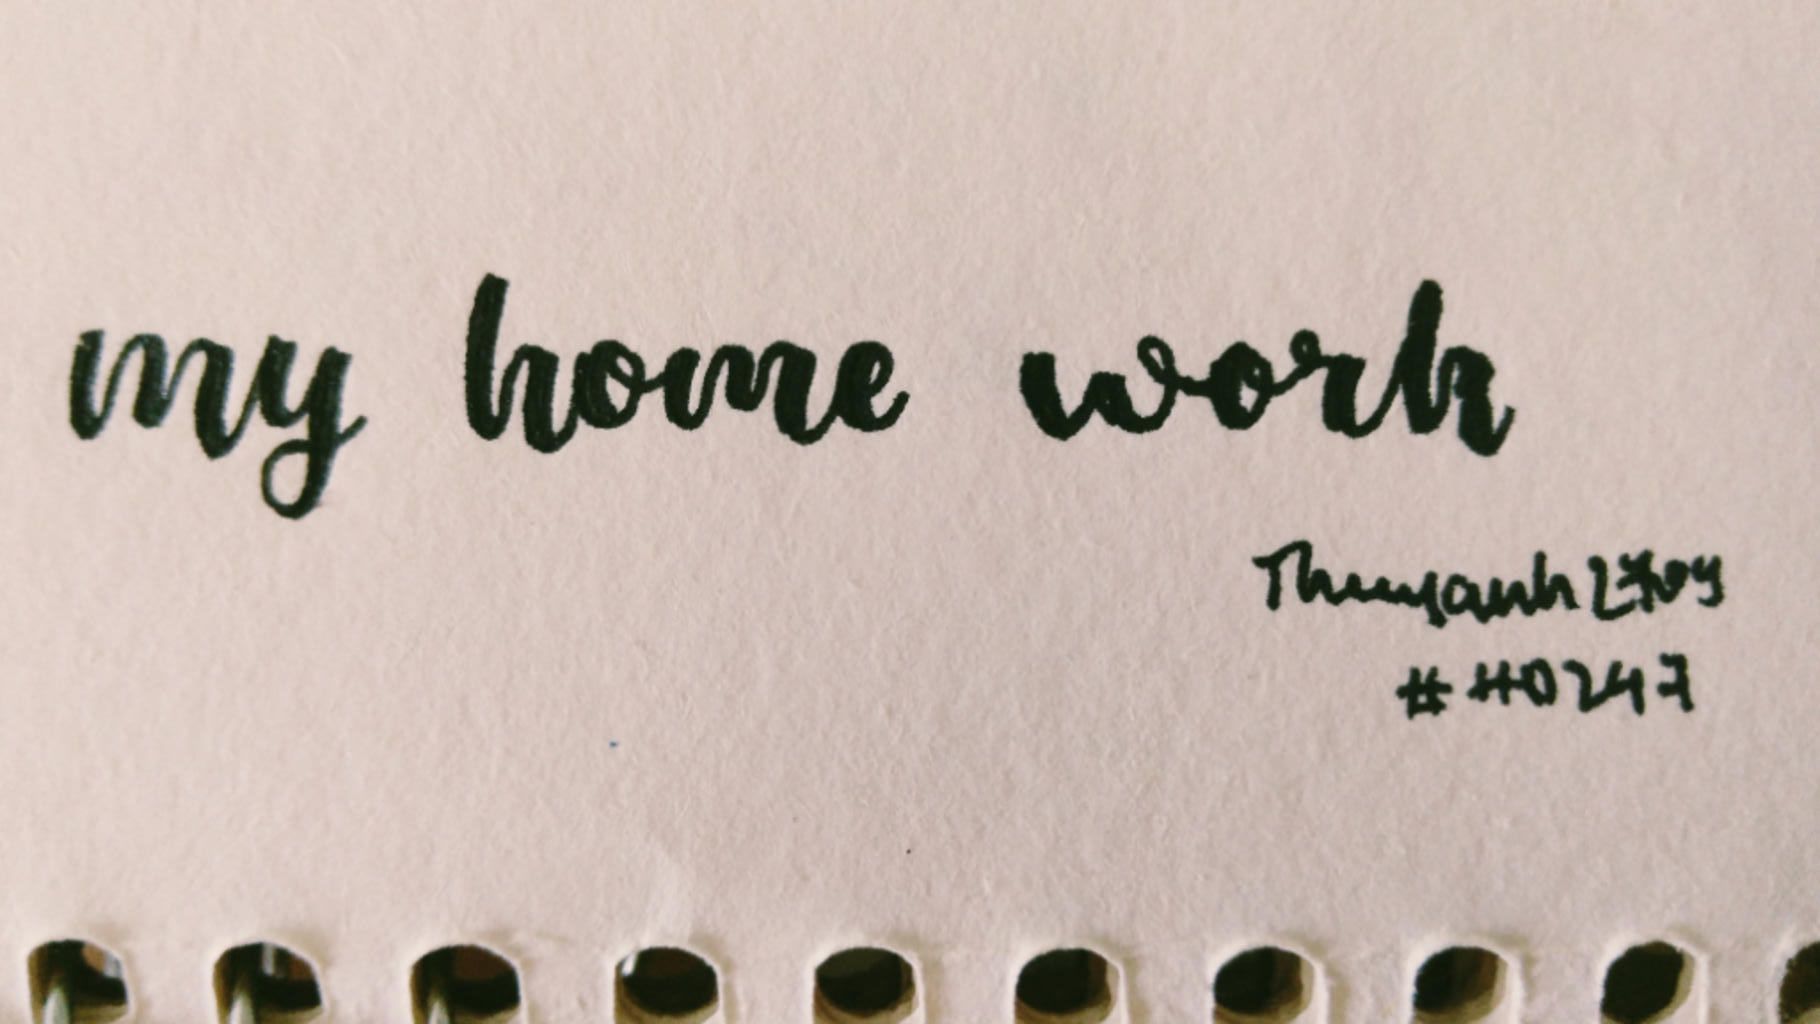 my home work
Thuyanh2703
#H0247